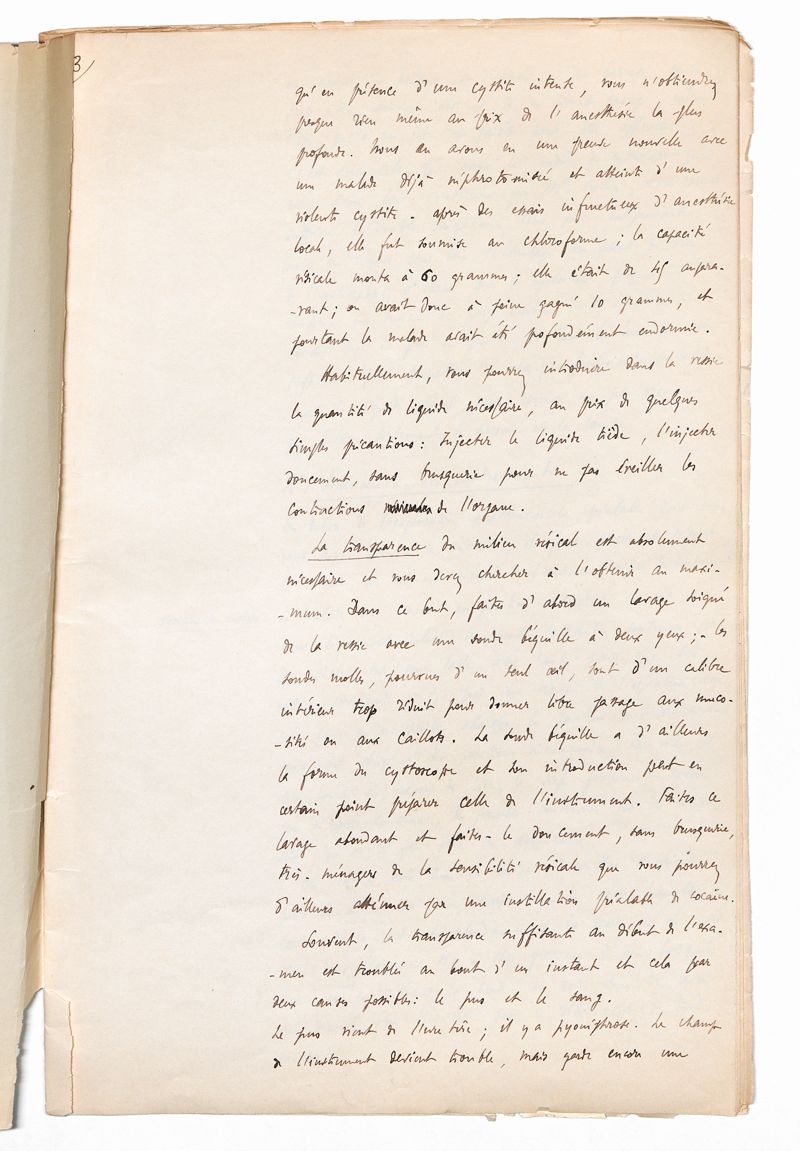 3
qu'en présence d'une cystite intense, vous n'obtiendrez
presque rien même au prix de l'anesthésie la plus
profonde. Nous en avons eu une preuve nouvelle avec
une malade déjà néphrotomisée et atteinte d'une
violente cystite - après des essais infructueux d'anesthésie
locale, elle fut soumise au chloroforme ; la capacité
vésicale monta à 60 grammes ; elle était de 45 aupara-
-vant ; on avait donc à peine gagné 10 grammes, et
pourtant la malade avait été profondément endormie.
Habituellement, vous pourrez introduire dans la vessie
la quantité de liquide nécessaire, au prix de quelques
simples précautions : Injecter le liquide tiède, l'injecter
doucement, sans brusquerie pour ne pas éveiller les
contractions de l'organe.
La transparence du milieu vésical est absolument
nécessaire et vous devez chercher à l'obtenir au maxi-
-mum. Dans ce but, faites d'abord un lavage soigné
de la vessie avec une sonde béquille à deux yeux ; - les
sondes molles, pourvues d'un seul œil, sont d'un calibre
intérieur trop réduit pour donner libre passage aux muco-
-sités ou aux caillots. La sonde béquille a d'ailleurs
la forme du cystoscope et son introduction peut en
certain point préparer celle de l'instrument. Faites ce
lavage abondant et faites-le doucement, sans brusquerie,
très-ménager de la sensibilité vésicale que vous pourrez
d'ailleurs atténuer par une instillation préalable de cocaïne.
Souvent, la transparence suffisante au début de l'exa-
-men est troublée au bout d'un instant et cela par
deux causes possibles : le pus et le sang.
Le pus vient de l'uretère ; il y a pyonéphrose. Le champ
de l'instrument devient trouble, mais garde encore une